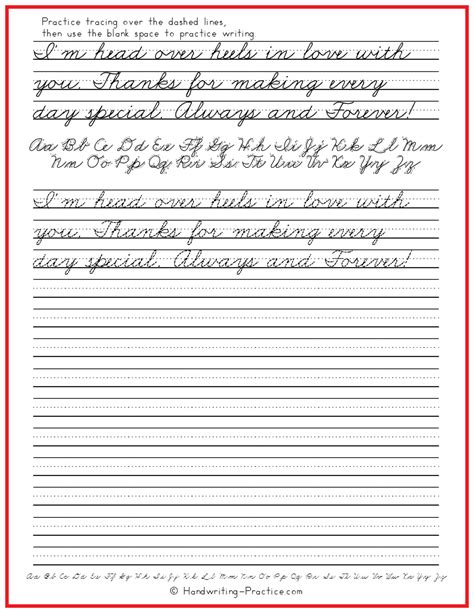 Practice tracing over the dashed lines,
then use the blank space to practice writing.
I'm head over heels in love with
you. Thanks for making every
day special. Always and Forever!
Aa Bb Cc Dd Ee Ff Gg Hh Ii Jj Kk Ll Mm
Nn Oo Pp Qq Rr Ss Tt Uu Vv Xx Yy Zz
I'm head over heels in love with
you. Thanks for making every
day special. Always and Forever!
Aa Bb Cc Dd Ee Ff Gg Hh Ii Jj Kk Ll Mm Nn Oo Pp Qq Rr Ss Tt Uu Vv Ww Xx Yy Zz
© Handwriting-Practice.com